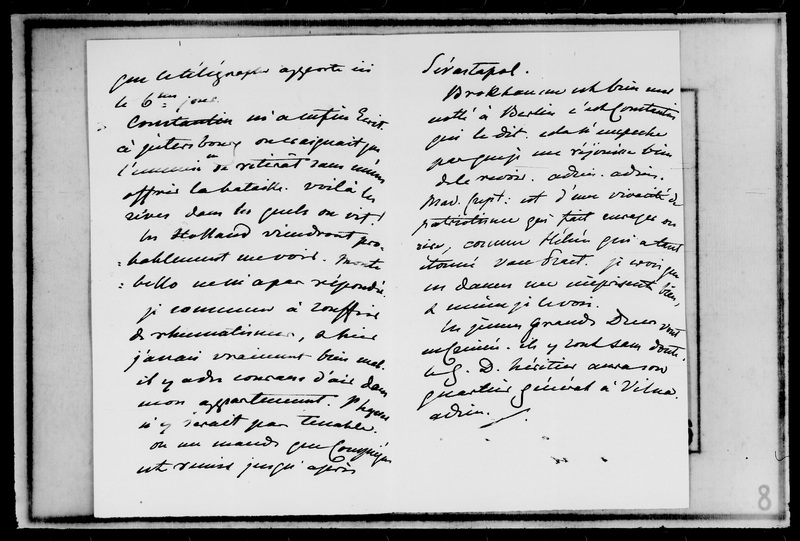 que le télégraphe apporte ici
le 6me jour.
Constantin m'a enfin écrit.
à pétersbourg on craignait que
l'ennemi se retirât sans même
offrir la bataille. voilà les
rêves dans les quels on vit!
les Holland viendront pro-
bablement me voir. Monte
bello ne m'a pas répondu.
je commence à souffrir
de rhumatismes, a hier
j'avais vraiment bien mal.
il y a des courans d'air dans
mon appartement.
n'y serait pas tenable.
on me mande que
est remise jusqu'après
Sévastopol.
Brokhausen est bien mal
noté à Berlin c'est Constantin
qui le dit. cela n'empêche
pas que je me réjouisse bien
de le revoir. adieu. adieu.
Mad. Crept: est d'une vivacité de
patriotisme qui fait enrager ou
rire, comme Hélène qui a tant
étonné van Straet. je crois que
ces dames me méprisent bien,
& même je le vois.
les jeunes Grands Ducs vont
en Crimée. ils y sont sans doute.
le G. D. héritier aura son
quartier général à Vilna.
adieu.
8